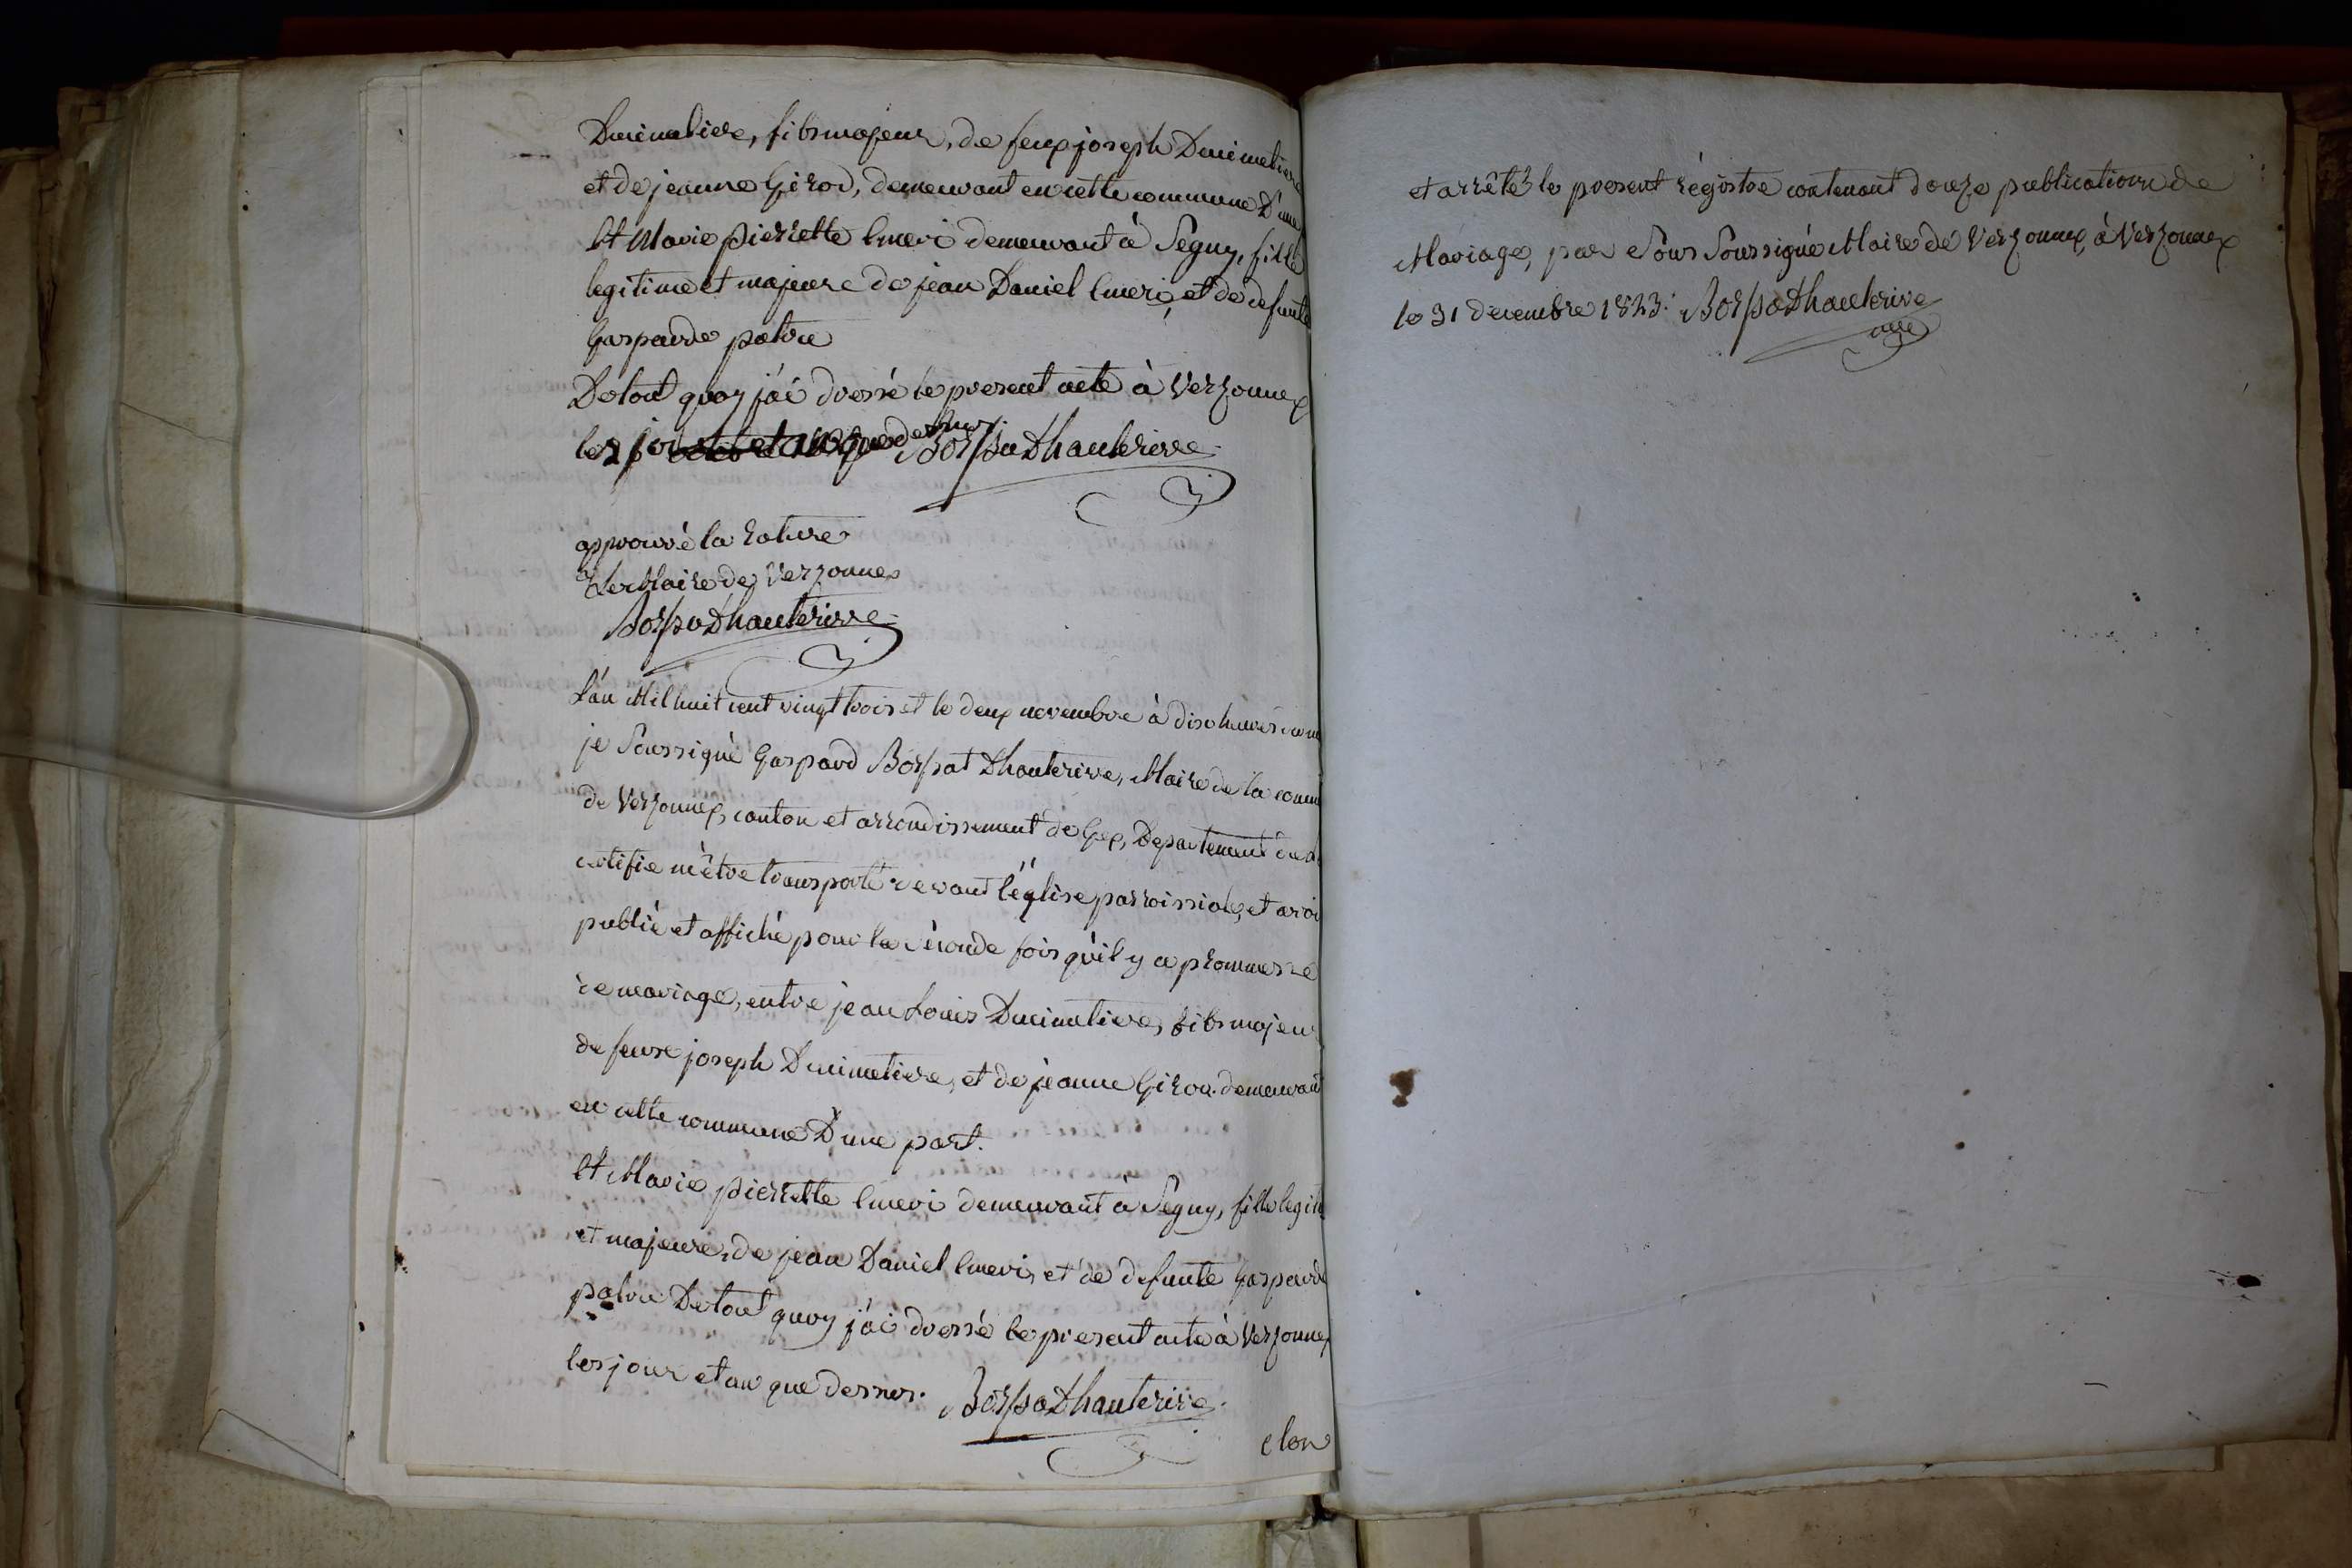 Ducimetiere, fils majeur, de feux joseph Ducimetiere
et de jeanne Girod, demeurant en cette commune D'une
Et Marie pierrette Emeri demeurant à Segny, fille
legitime et majeure de jean Daniel Emeri, et de defunte
Gasparde patru
De tout quoy j'ái dressé le present acte à Verzonnex
les jour et an que dessus. Bossa Dhauterive
approuvé la rature
Le Maire de Verzonnex
Bossa Dhauterive
L'án Mil huit cent vingt trois et le deux novembre à dix heures
je Soussigné Gaspard Bossat Dhauterive, Maire de la comm
de Verzonnex, canton et arrondissement de Gex, Departement de
certifie m'être transporté devant l'église parroissiale, et avoi
publié et affiché pour la séconde fois qu'il y a prommesse
de mariage, entre jean Louis Ducimetiere, fils majeur
de feux joseph Ducimetiere, et de jeanne Girod demeurant
en cette commune D'une part.
Et Marie pierrette Emeri demeurant à Segny, fille legiti
et majeure, de jean Daniel Emeri, et de defunte Gasparde
patru De tout quoy j'ái dressé le present acte à Verzonnex
les jour et an que dessus. Bossa Dhauterive
clou
et arrêté le present régistre contenant douze publications de
Mariage, par Nous Soussigné Maire de Verzonnex, à Verzonnex
le 31 decembre 1823. Bossa Dhauterive